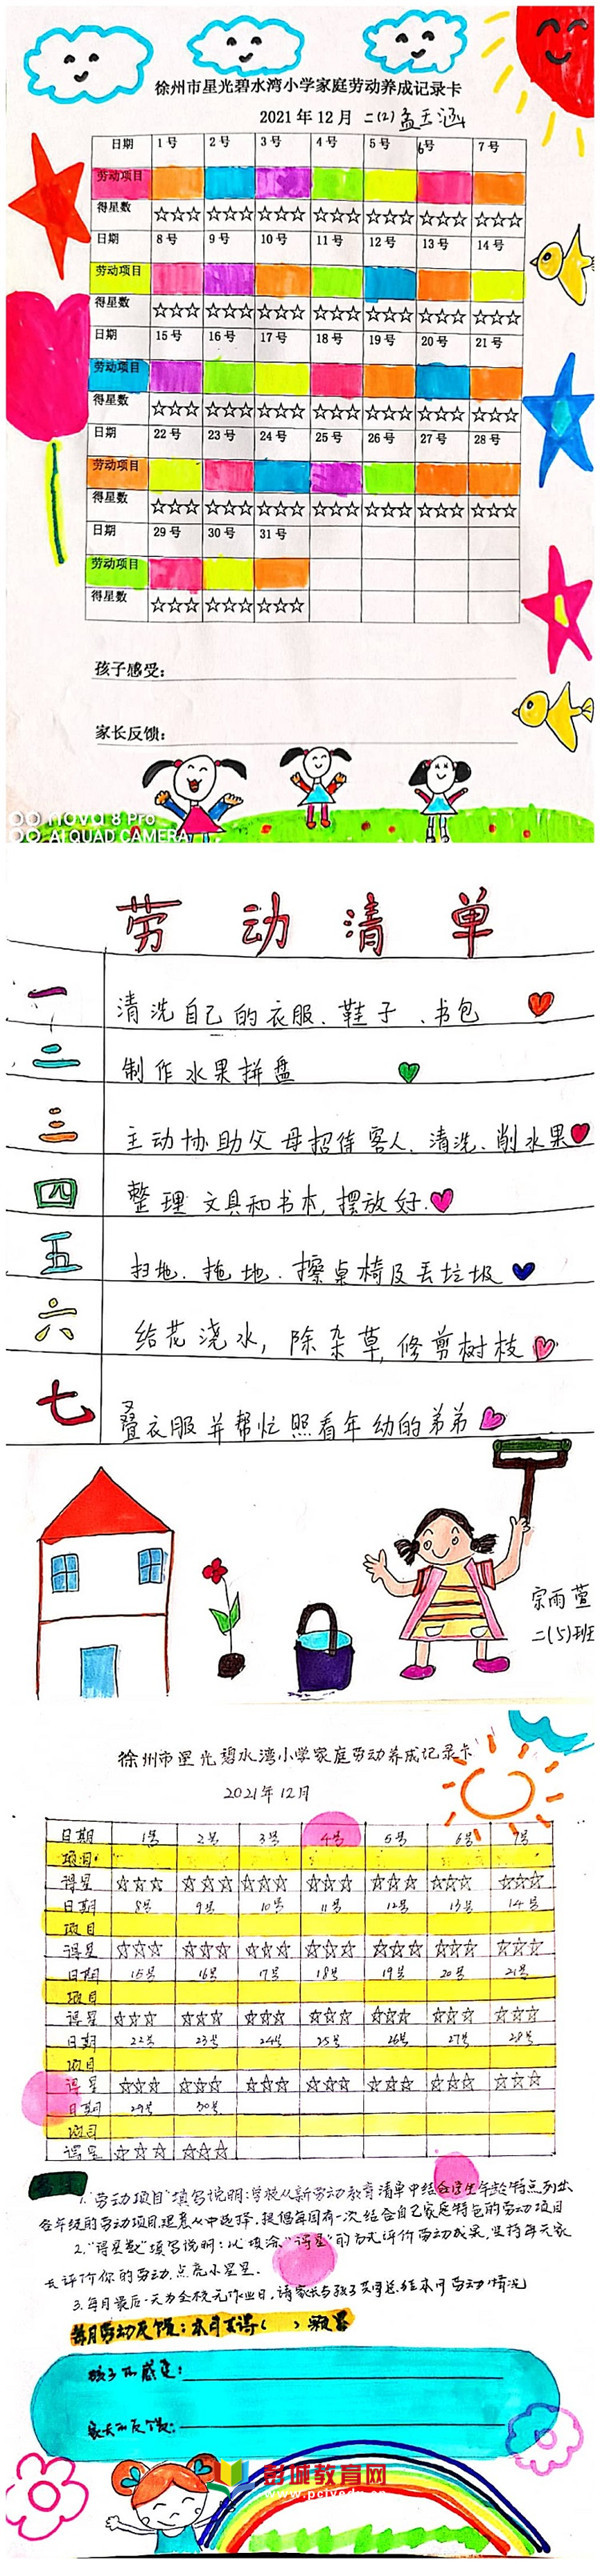 徐州市星光碧水湾小学家庭劳动养成记录卡
2021年12月 二(2) 孟玉涵
日期 1号 2号 3号 4号 5号 6号 7号
劳动项目
得星数 ☆☆☆ ☆☆☆ ☆☆☆ ☆☆☆ ☆☆☆ ☆☆☆ ☆☆☆
日期 8号 9号 10号 11号 12号 13号 14号
劳动项目
得星数 ☆☆☆ ☆☆☆ ☆☆☆ ☆☆☆ ☆☆☆ ☆☆☆ ☆☆☆
日期 15号 16号 17号 18号 19号 20号 21号
劳动项目
得星数 ☆☆☆ ☆☆☆ ☆☆☆ ☆☆☆ ☆☆☆ ☆☆☆ ☆☆☆
日期 22号 23号 24号 25号 26号 27号 28号
劳动项目
得星数 ☆☆☆ ☆☆☆ ☆☆☆ ☆☆☆ ☆☆☆ ☆☆☆ ☆☆☆
日期 29号 30号 31号
劳动项目
得星数 ☆☆☆ ☆☆☆ ☆☆☆
孩子感受:
家长反馈:
nova 8 Pro
AI QUAD CAMERA
劳动清单
一 清洗自己的衣服、鞋子、书包
二 制作水果拼盘
三 主动协助父母招待客人、清洗、削水果
四 整理文具和书本,摆放好.
五 扫地、拖地、擦桌椅及丢垃圾
六 给花浇水,除杂草,修剪树枝
七 叠衣服并帮忙照看年幼的弟弟
宗雨萱
二(5)班
徐州市星光碧水湾小学家庭劳动养成记录卡
2021年12月
日期 1号 2号 3号 4号 5号 6号 7号
项目
得星 ☆☆☆ ☆☆☆ ☆☆☆ ☆☆☆ ☆☆☆ ☆☆☆ ☆☆☆
日期 8号 9号 10号 11号 12号 13号 14号
项目
得星 ☆☆☆ ☆☆☆ ☆☆☆ ☆☆☆ ☆☆☆ ☆☆☆ ☆☆☆
日期 15号 16号 17号 18号 19号 20号 21号
项目
得星 ☆☆☆ ☆☆☆ ☆☆☆ ☆☆☆ ☆☆☆ ☆☆☆ ☆☆☆
日期 22号 23号 24号 25号 26号 27号 28号
项目
得星 ☆☆☆ ☆☆☆ ☆☆☆ ☆☆☆ ☆☆☆ ☆☆☆ ☆☆☆
日期 29号 30号
项目
得星 ☆☆☆ ☆☆☆
1."劳动项目"填写说明:学校从新劳动教育清单中结合学生年龄特点列出
各年级的劳动项目,随意从中选择.提倡每周有一次结合自己家庭特色的劳动项目
2."得星数"填写说明:以"填涂""得星"的方式评价劳动成果,坚持每天家
长评价你的劳动.点亮小星星.
3.每月最后一天为全校无作业日,请家长与孩子共同总结本月劳动情况
每月劳动反馈:本月共得( )颗星
孩子的感受:
家长的反馈:
彭城教育网
www.pcjyedu.cn